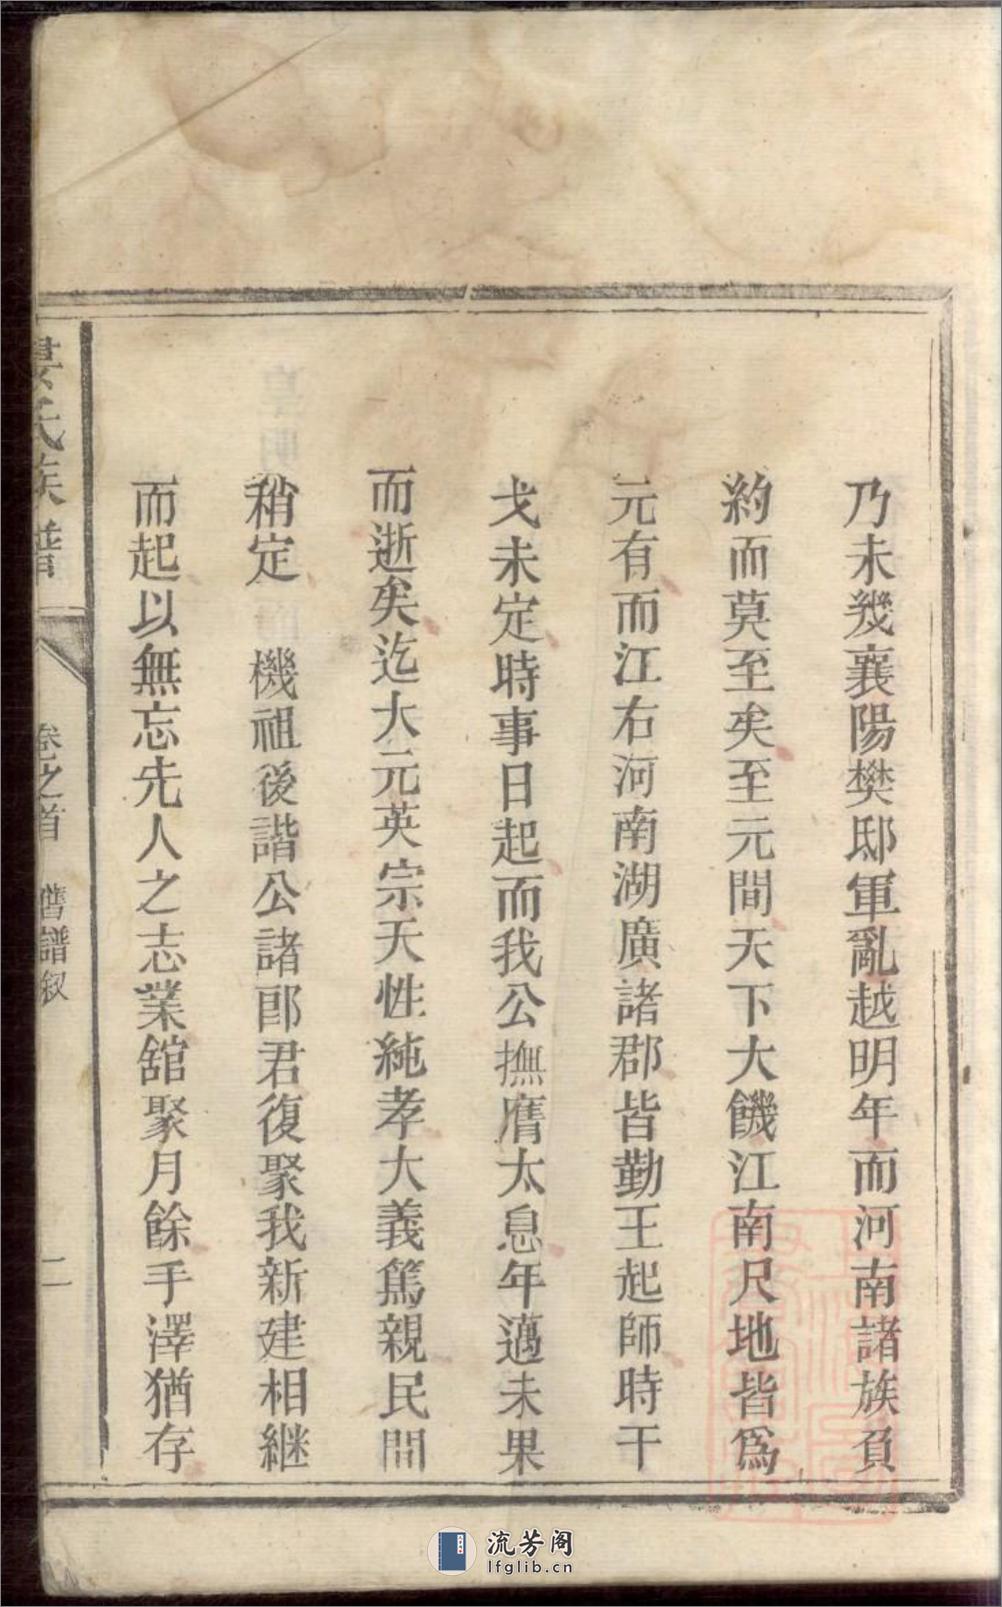 乃未幾襄陽樊邸軍亂越明年而河南諸族負
約而莫至矣至元間天下大饑江南尺地皆爲
元有而江右河南湖廣諸郡皆勤王起師時干
戈未定時事日起而我公撫膺太息年邁未果
而逝矣迄大元英宗天性純孝大義篤親民間
稍定 機祖後諧公諸郎君復聚我新建相継
而起以無忘先人之志業舘聚月餘手澤猶存
氏族譜
卷之首 舊譜叙
二
流芳阁
lfglib.cn